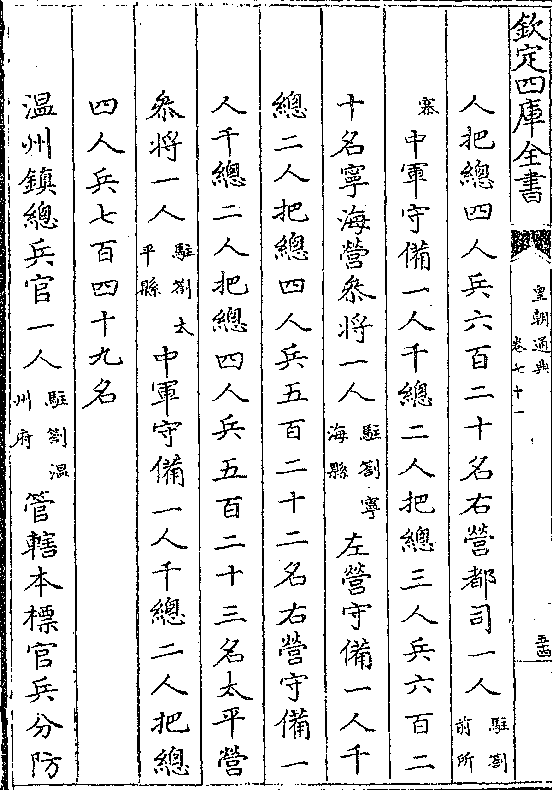 欽定四庫全書
皇朝通典
卷七十一
人把總四人兵六百二十名右營都司一人駐劄前所
寨中軍守備一人千總二人把總三人兵六百二
十名寧海營叅將一人駐劄寧海縣左營守備一人千
總二人把總四人兵五百二十二名右營守備一
人千總二人把總四人兵五百二十三名太平營
叅將一人駐劄太平縣中軍守備一人千總二人把總
四人兵七百四十九名
温州鎮總兵官一人駐劄温州府管轄本標官兵分防